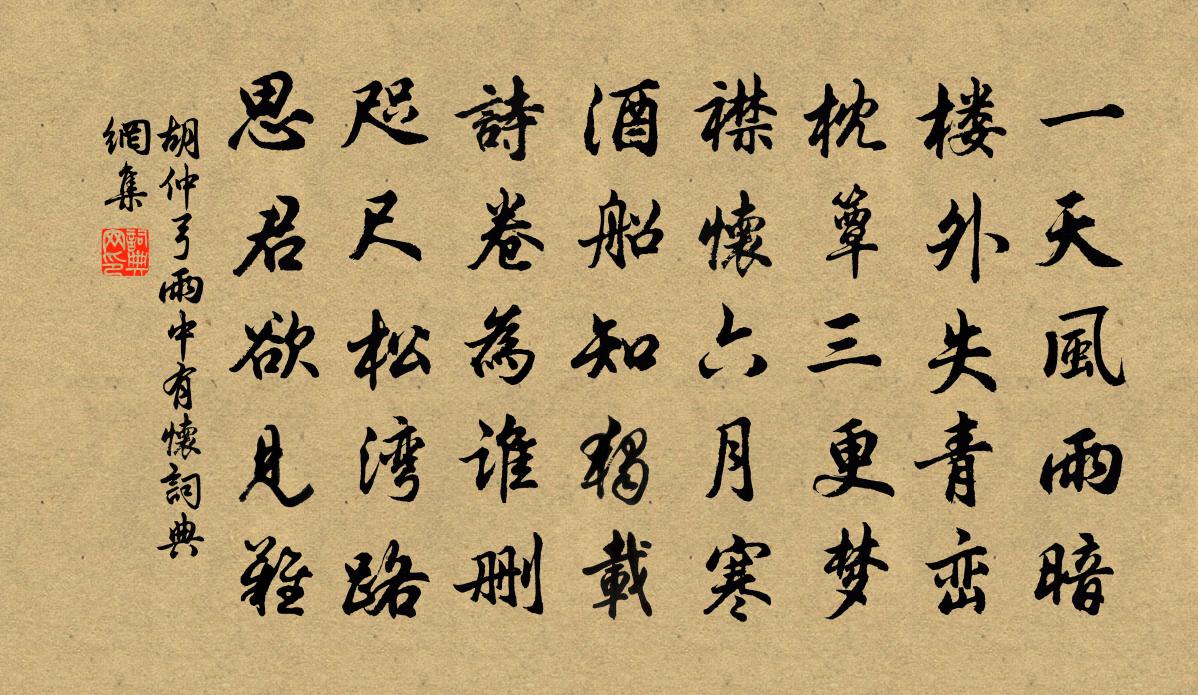 一天風雨暗
楼外失青峦
枕簟三更梦
襟懷六月寒
酒船知獨載
詩卷為誰删
咫尺松湾路
思君欲见難
胡仲弓雨中有懷詞典
網集
詞典網印